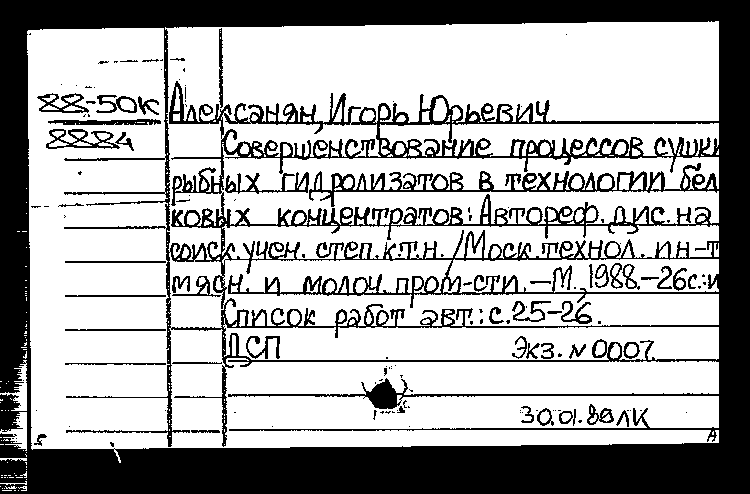 88-50К Алексанян, Игорь Юрьевич.
8884 Совершенствование процессов сушки
рыбных гидролизатов в технологии бел
ковых концентратов: Автореф. дис. на
соиск. учен. степ. к.т.н. /Моск. технол. ин-т
мясн. и молоч. пром-сти. — М., 1988. — 26с.: и
Список работ авт.: с. 25-26.
ДСП Экз. N 0007
30.01.89 ЛК
А